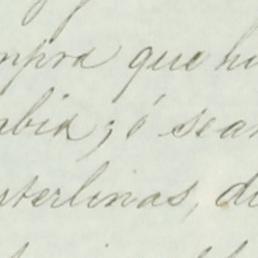 mpra que h
mbia; ó sean
sterlinas, d